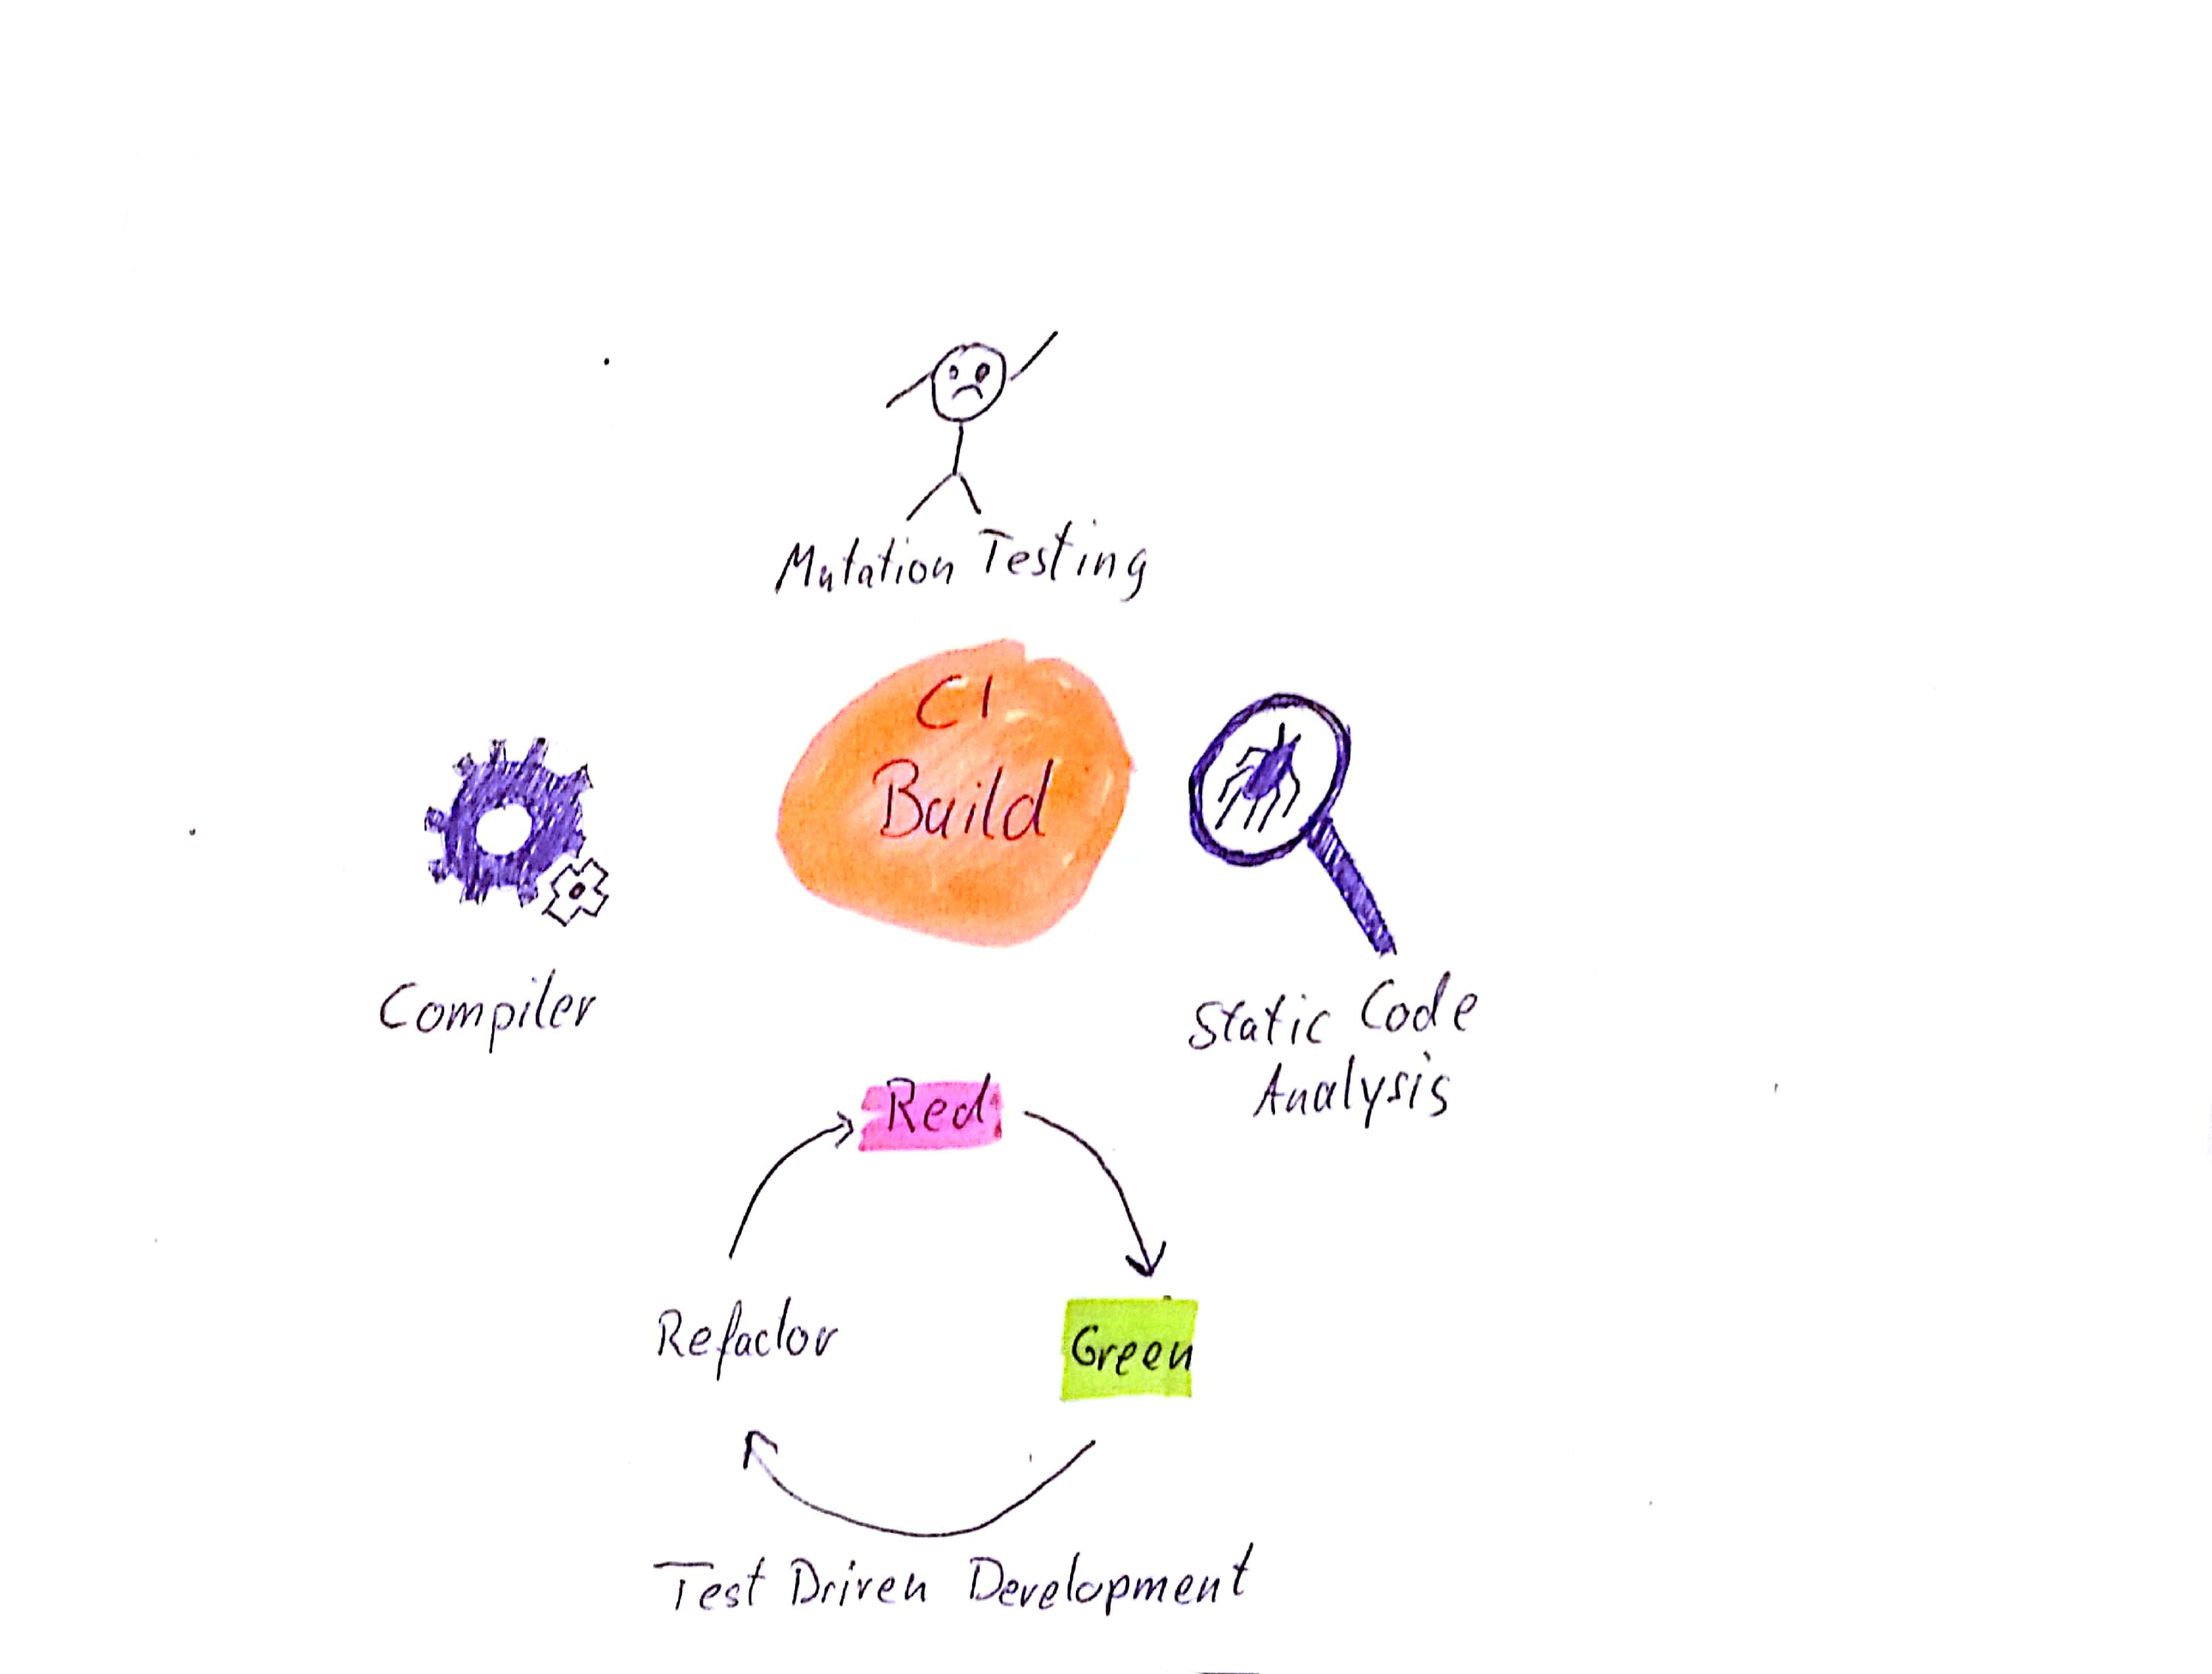 Mutation Testing
CI
Build
Compiler
Static Code
Analysis
Red
Refactor
Green
Test Driven Development